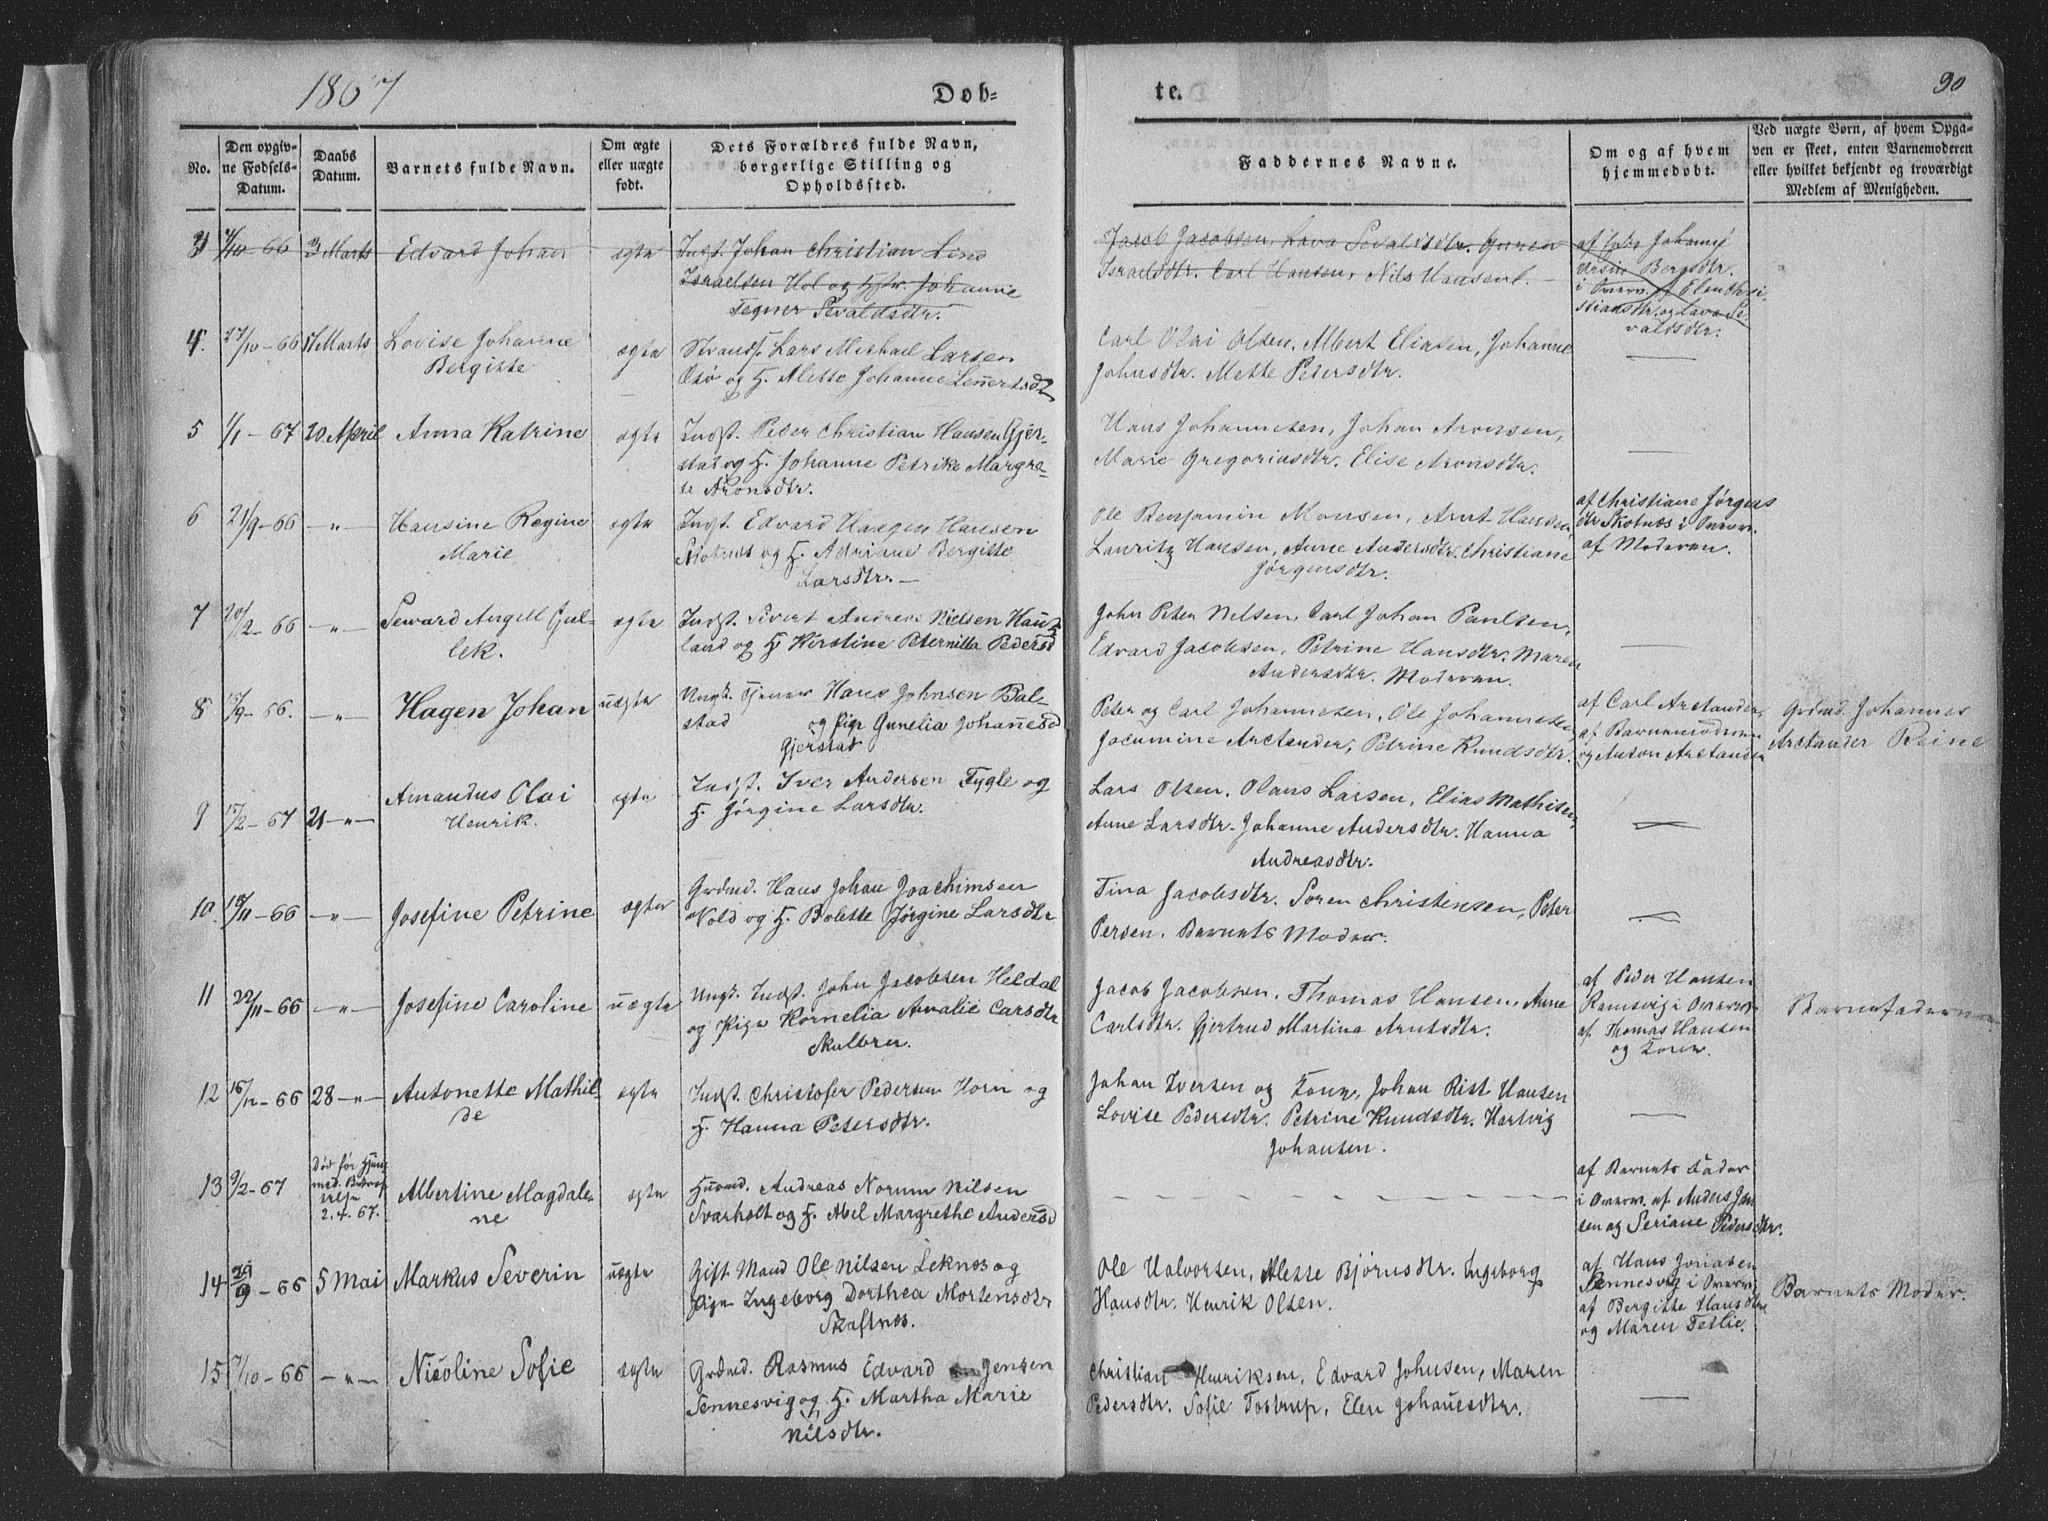 1867
Døb-
te.
90
No.
Den opgiv-
ne Fødsels-
Datum.
Daabs
Datum.
Barnets fulde Navn.
Om ægte
eller uægte
født.
Dets Forældres fulde Navn,
borgerlige Stilling og
Opholdssted.
Faddernes Navne.
Om og af hvem
hjemmedøbt.
Ved uægte Børn, af hvem Opga-
ven er skeet, enten Barnemoderen
eller hvilket bekjendt og troværdigt
Medlem af Menigheden.
3 4/10-66 3 Marts Edvard Johan ægte
Indst. Johan Christian Lind
Israelsen Hol og Hstr. Johanne
Tegner Sevaldsdtr.
Jacob Jacobsen, Lava Sevaldsdtr. Guren
Israelsdtr. Carl Hansen, Nils Hansen
Bergsdtr.
i Overv. af Elen Chri-
stiansdtr. og Lava Se-
valdsdtr.
4. 27/10-66 17 Marts Lovise Johanne
Bergitte
ægte
Strands. Lars Michael Larsen
og H. Alette Johanne Lennertsdtr
Carl Olai Olsen, Albert Eliasen, Johanne
Johnsdtr. Mette Pedersdtr.
5 1/1-67 20 April Anna Katrine ægte
Indst. Peder Christian Hansen Gjer-
stad og H. Johanne Petrike Margre-
te Aronsdtr.
Hans Johannesen, Johan Aronsen,
Marie Gregoriusdtr. Elise Aronsdtr.
6 21/9-66 -"- Hansine Regine
Marie
ægte
Indst. Edvard Haagen Hansen
Skotnæs og H. Adriane Bergitte
Larsdtr.
Ole Benjamin Monsen, Arnt Hansen,
Lauritz Hansen, Anne Andersdtr. Christiane
Jørgensdtr.
af Christiane Jørgens
dtr Skotnæs i Overv.
af Moderen.
7 20/2-66 -"- Seward Angell Gul-
lek.
ægte
Indst. Sivert Andreas Nielsen Haug-
land og H. Kirstine Peternilla Pedersd
John Peter Nilsen, Carl Johan Paulsen,
Edvard Jacobsen, Petrine Hansdtr. Maren
Andersdtr. Moderen.
8 15/9-66. -"- Hagen Johan uægte
Ungk. Tjener Hans Johnsen Bal-
stad og Pige Gunelia Johanesd
Gjerstad
Peter og Carl Johannesen, Ole Johannesen
Jacumine Arctander, Petrine Knudsdtr.
af Carl Arctander,
af Barnemoderen
og Anton Arctander
Grdmd. Johannes
Arctander Reine
9 17/2-67 21 -"- Amandus Olai
Henrik.
ægte
Indst. Iver Andersen Fygle og
H. Jørgine Larsdtr.
Lars Olsen, Olaus Larsen, Elias Mathisen,
Anne Larsdtr. Johanne Andersdtr. Hanna
Andreasdtr.
10. 18/11-66 -"- Josefine Petrine ægte
Grdmd. Hans Johan Joachimsen
Vold og H. Bolette Jørgine Larsdtr
Tina Jacobsdtr. Soren Christensen, Peter
Persen. Barnets Moder.
11 22/11-66 -"- Josefine Caroline uægte
Ungk. Indst. John Jacobsen Heldal
og Pige Kornelia Amalie Carsdtr
Skulbru.
Jacob Jacobsen, Thomas Hansen, Anne
Carlsdtr. Gjertrud Martina Arntsdtr.
af Peder Hansen
Ramsvig i Overv.
af Thomas Hansen
og Kone.
Barnefaderen
12 16/12-66 28 -"- Antonette Mathil-
de
ægte
Indst. Christofer Pedersen Horn og
H. Hanna Petersdtr.
Johan Iversen og Kone, Johan Rist Hansen
Lovise Pedersdtr. Petrine Knudsdtr. Hartvig
Johansen.
13 9/2-67 Død før Hjem-
2.4.67.
Albertine Magdale-
ne
ægte
Husmd. Andreas Norum Nilsen
Svarholt og H. Abel Margrethe Andersd
af Barnets Fader
i Overv. af Anders Jen
sen og Seriane Pedersdtr.
14 29/9-66 5 Mai Markus Severin uægte
Gift Mand Ole Nilsen Leknes og
Pige Ingeborg Dorthea Mortensdtr
Skaftnes.
Ole Halvorsen, Alette Bjørnsdtr. Ingeborg
Hansdtr. Henrik Olsen.
af Hans Jonasen
Sennesvig i Overv.
af Bergitte Hansdtr
og Maren Feslie.
Barnets Moder.
15 7/10-66 -"- Nicoline Sofie ægte
Grdmd. Rasmus Edvard Jensen
Sennesvig og H. Martha Marie
Nilsdtr.
Christian Henriksen, Edvard Johnsen, Maren
Pedersdtr. Sofie Tostrup, Elen Johanesdtr.